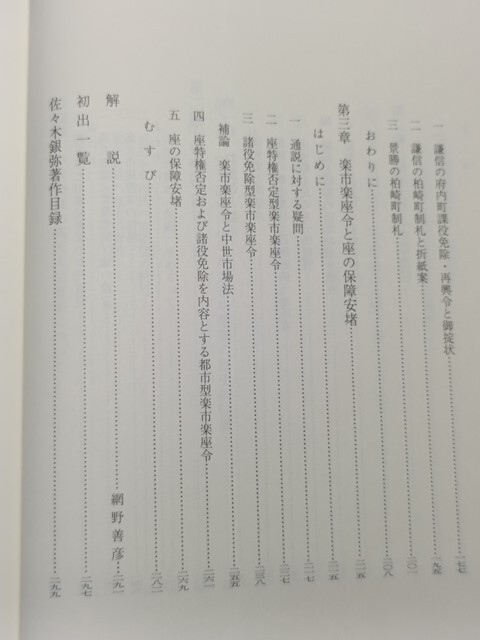 一 謙信の府内町課役免除・再興令と御掟状……一七七
二 謙信の柏崎町制札と折紙案……一九五
三 景勝の柏崎町制札……二〇一
おわりに……二〇八
第三章 楽市楽座令と座の保障安堵……二一五
はじめに……二一五
一 通説に対する疑問……二一七
二 座特権否定型楽市楽座令……二二七
三 諸役免除型楽市楽座令……二三八
補論 楽市楽座令と中世市場法……二五五
四 座特権否定および諸役免除を内容とする都市型楽市楽座令……二六一
五 座の保障安堵……二六九
むすび……二八二
解説……網野善彦……二九一
初出一覧……二九七
佐々木銀弥著作目録……二九九